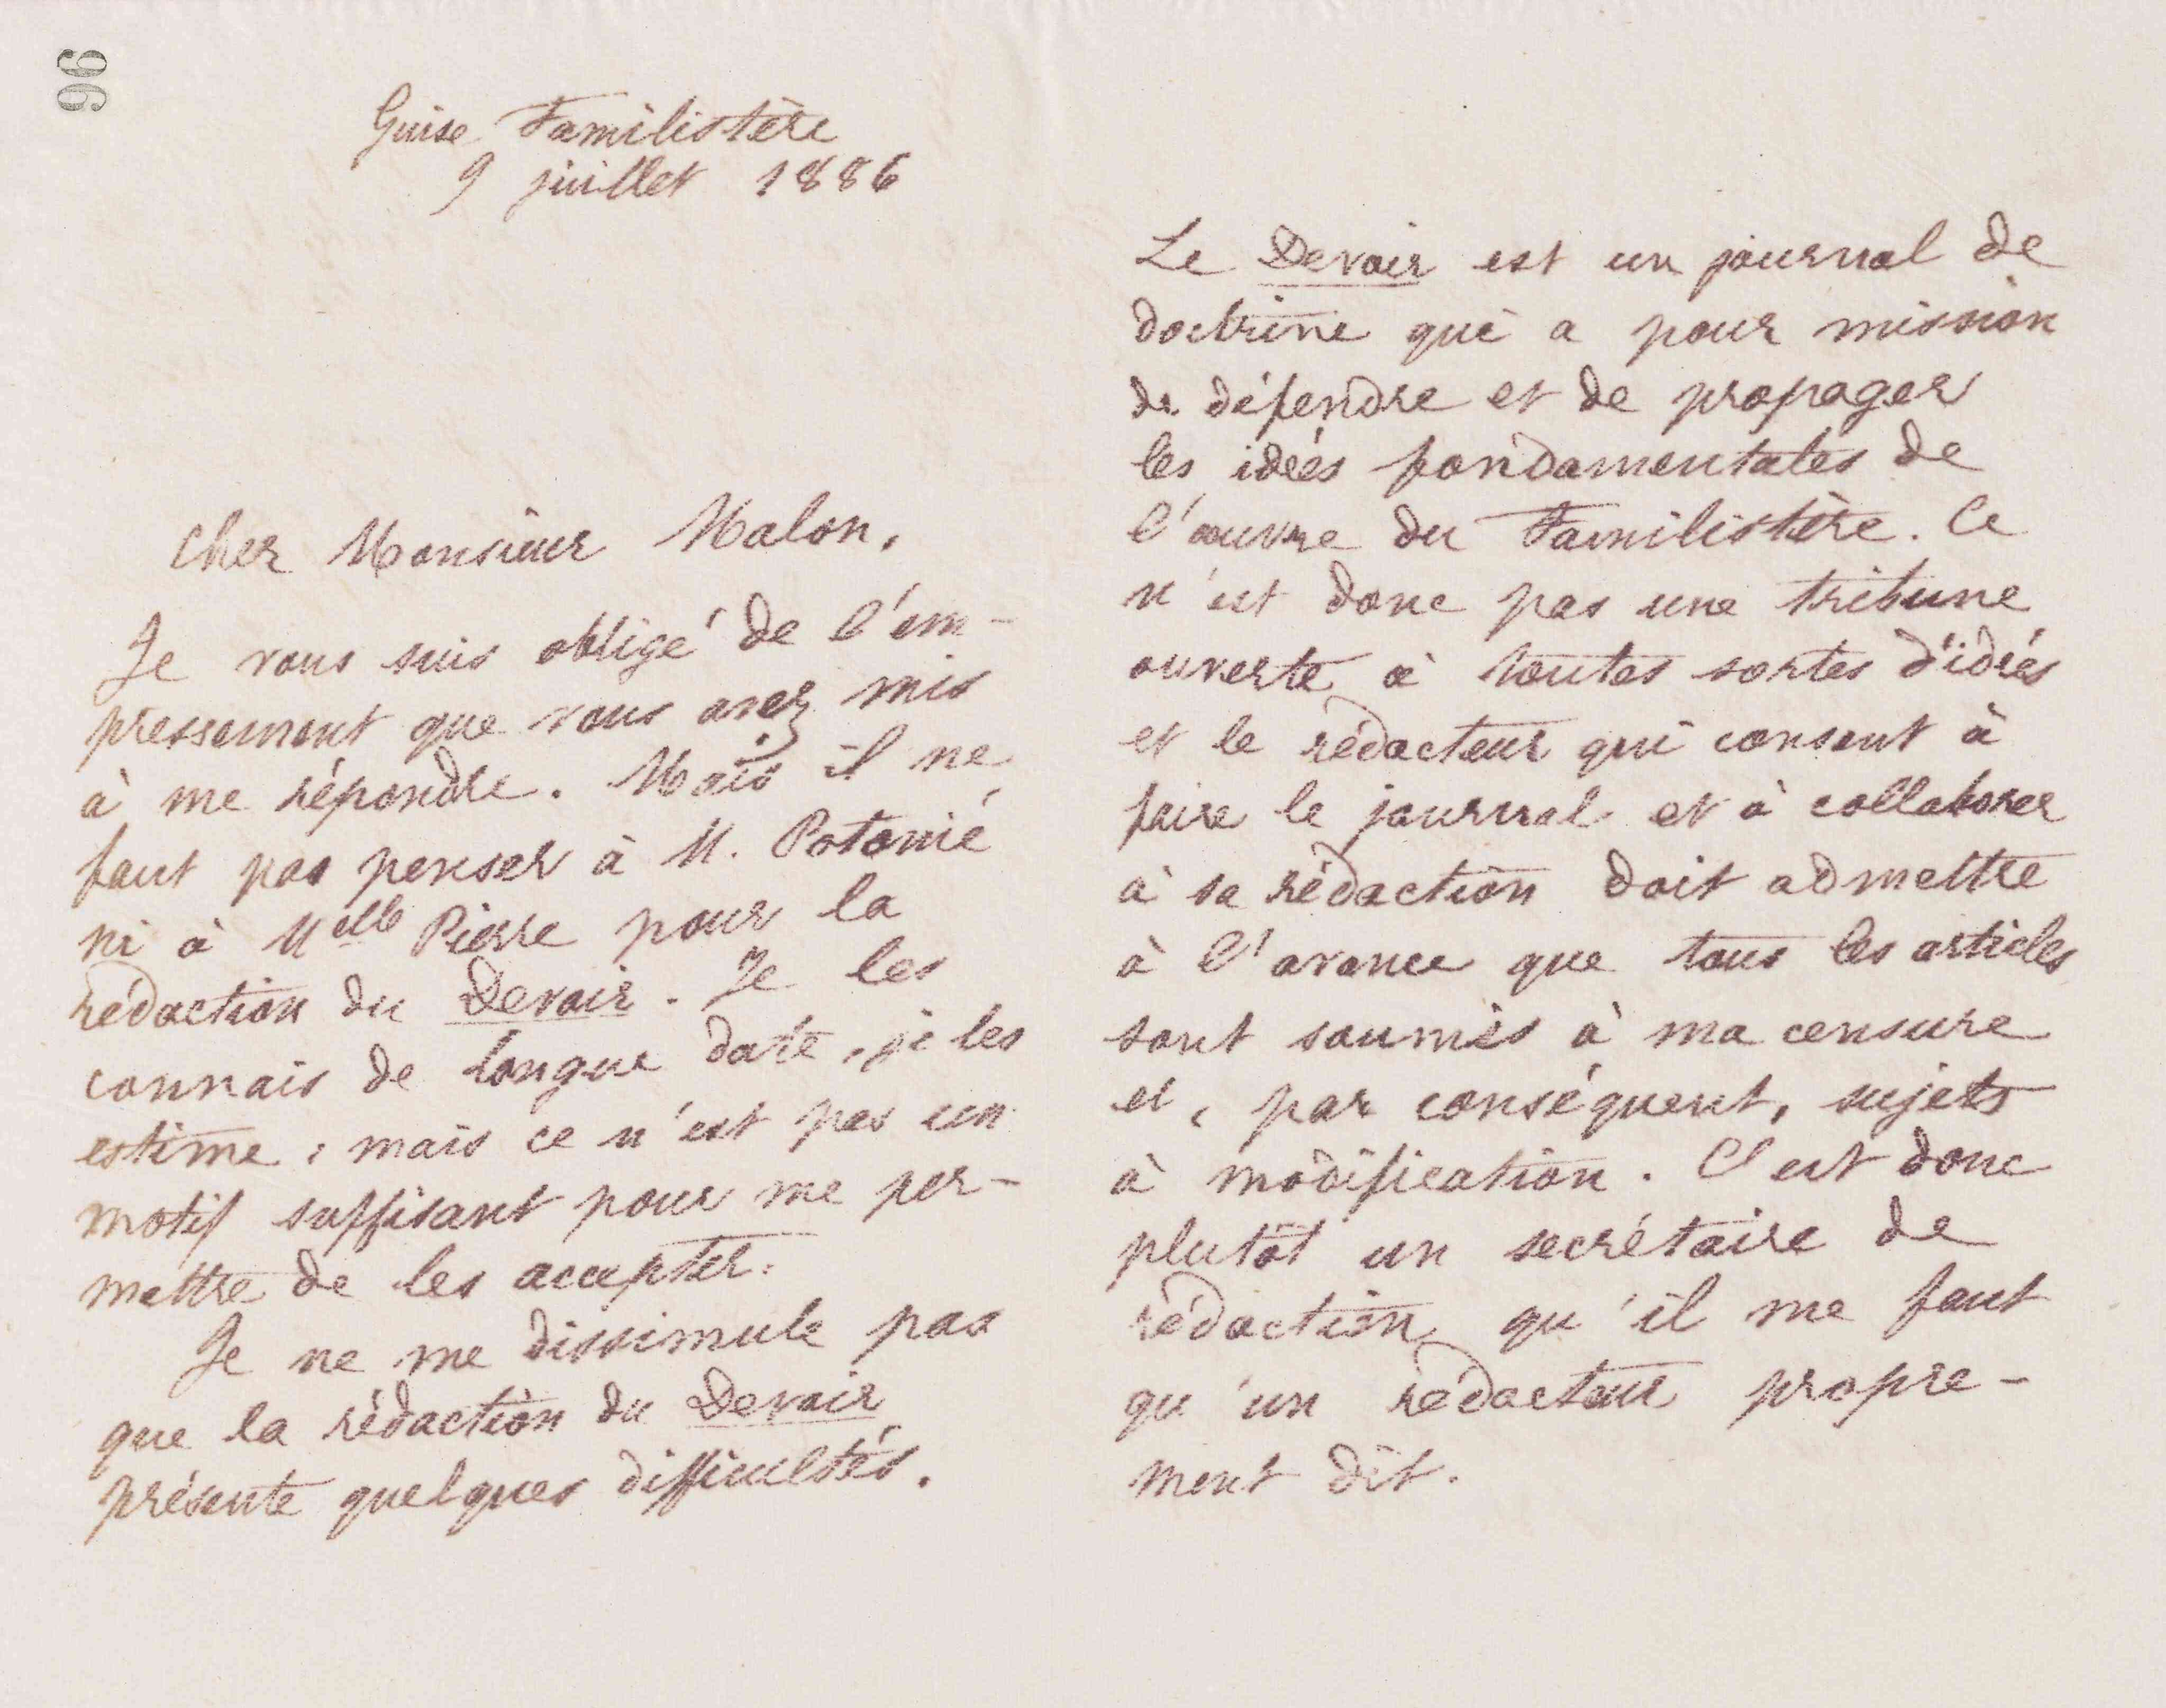 96
Guise Familistère
9 juillet 1886
Cher Monsieur Malon,
Je vous suis obligé de l'em-
pressement que vous avez mis
à me répondre. Mais il ne
faut pas penser à M. Potonié
ni à Melle Pierre pour la
rédaction du Devoir. Je les
connais de longue date, je les
estime ; mais ce n'est pas un
motif suffisant pour me per-
mettre de les accepter.
Je ne me dissimule pas
que la rédaction du Devoir
présente quelques difficultés.
Le Devoir est un journal de
doctrine qui a pour mission
de défendre et de propager
les idées fondamentales de
l'œuvre du Familistère. Ce
n'est donc pas une tribune
ouverte à toutes sortes d'idées
et le rédacteur qui consent à
faire le journal et à collaborer
à sa rédaction doit admettre
à l'avance que tous les articles
sont soumis à ma censure
et, par conséquent, sujets
à modification. C'est donc
plutôt un secrétaire de
rédaction qu'il me faut
qu'un rédacteur propre-
ment dit.